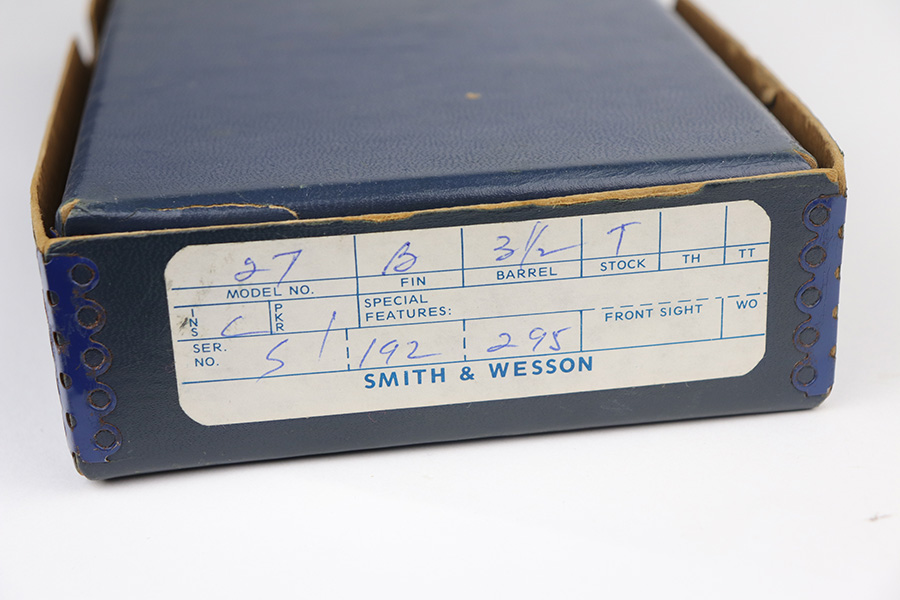 27 B 3 1/2 T
MODEL NO. FIN BARREL STOCK TH TT
INS C PKR SPECIAL FEATURES: FRONT SIGHT WO
SER. NO. S 192 295
SMITH & WESSON